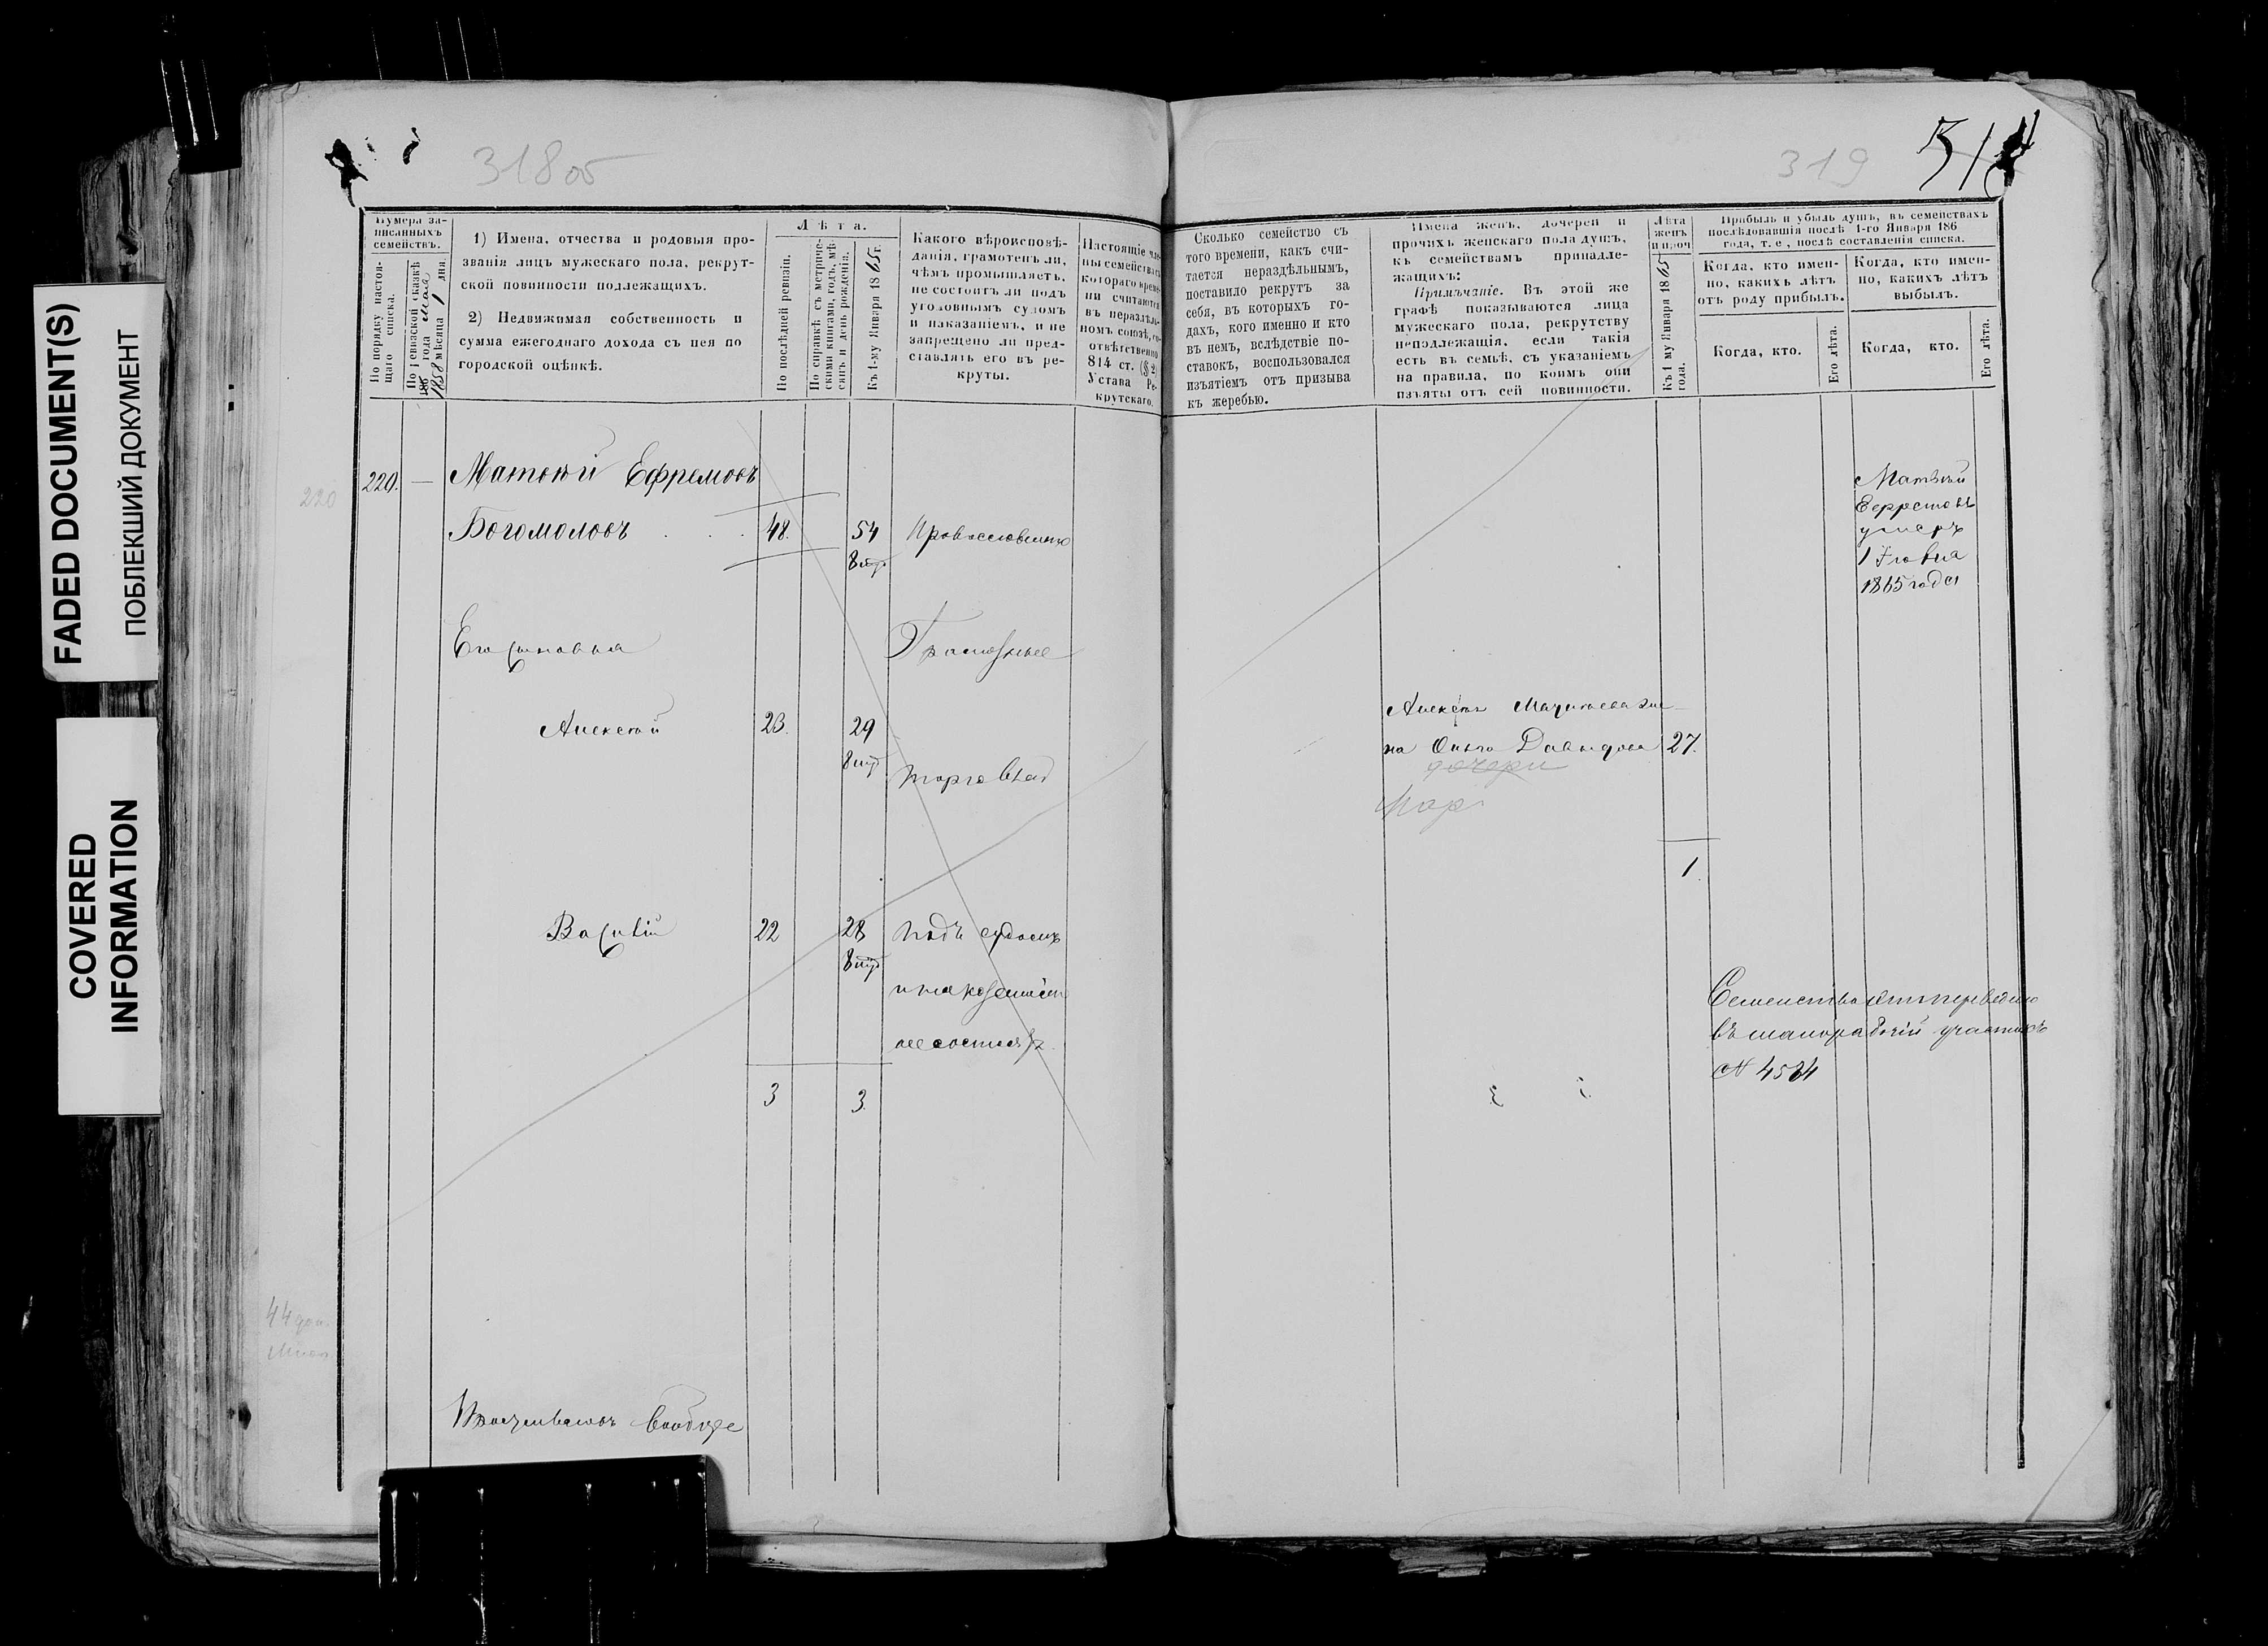 FADED DOCUMENT(S)
ПОБЛЕКШИЙ ДОКУМЕНТ
COVERED
INFORMATION
318 об
319
Нумера за-
писанныхъ
семействъ.
По порядку настоя-
щаго списка.
По ревизской сказкѣ
года мая
1858 мѣсяца 1 дня.
1) Имена, отчества и родовыя про-
званія лицъ мужескаго пола, рекрут-
ской повинности подлежащихъ.
2) Недвижимая собственность и
сумма ежегоднаго дохода съ нея по
городской оцѣнкѣ.
Лѣта.
По послѣдней ревизіи.
По справкѣ съ метриче-
скими книгами, годъ, мѣ-
сяцъ и день рожденія.
Къ 1-му Января 1865 г.
Какого вѣроисповѣ-
данія, грамотенъ ли,
чѣмъ промышляетъ,
не состоитъ ли подъ
уголовнымъ судомъ
и наказаніемъ, и не
запрещено ли пред-
ставлять его въ ре-
круты.
Настоящіе чле-
ны семейства съ
котораго време-
ни считаются
въ нераздѣль-
номъ союзѣ, со-
отвѣтственно
814 ст. (§ 2)
Устава Ре-
крутскаго.
Сколько семейство съ
того времени, какъ счи-
тается нераздѣльнымъ,
поставило рекрутъ за
себя, въ которыхъ го-
дахъ, кого именно и кто
въ немъ, вслѣдствіе по-
ставокъ, воспользовался
изъятіемъ отъ призыва
къ жеребью.
Имена женъ, дочерей и
прочихъ женскаго пола душъ,
къ семействамъ принадле-
жащихъ:
Примѣчаніе. Въ этой же
графѣ показываются лица
мужескаго пола, рекрутству
неподлежащія, если такія
есть въ семьѣ, съ указаніемъ
на правила, по коимъ они
изъяты отъ сей повинности.
Лѣта
женъ
и проч
Къ 1 му Января 1865
года.
Прибыль и убыль душъ, въ семействахъ
послѣдовавшія послѣ 1-го Января 186
года, т. е., послѣ составленія списка.
Когда, кто имен-
но, какихъ лѣтъ
отъ роду прибылъ.
Когда, кто имен-
но, какихъ лѣтъ
выбылъ.
Когда, кто.
Его лѣта.
Когда, кто.
Его лѣта.
220
220. — Матвѣй Ефремовъ
Богомоловъ 48. 54 Православнаго
Матвѣй
Ефремовъ
умеръ
1865 года
Его сыновья
Грамотные
Алексѣй 23. 29
торговлею
Алексѣя Матвѣева же-
на Ольга Давыдова 27.
дочери
Мар
1.
Василій 22 28 подъ судомъ
и наказаніемъ
не состоятъ
3 3
Семейство это переведено
въ малорабочій участокъ
N 4584